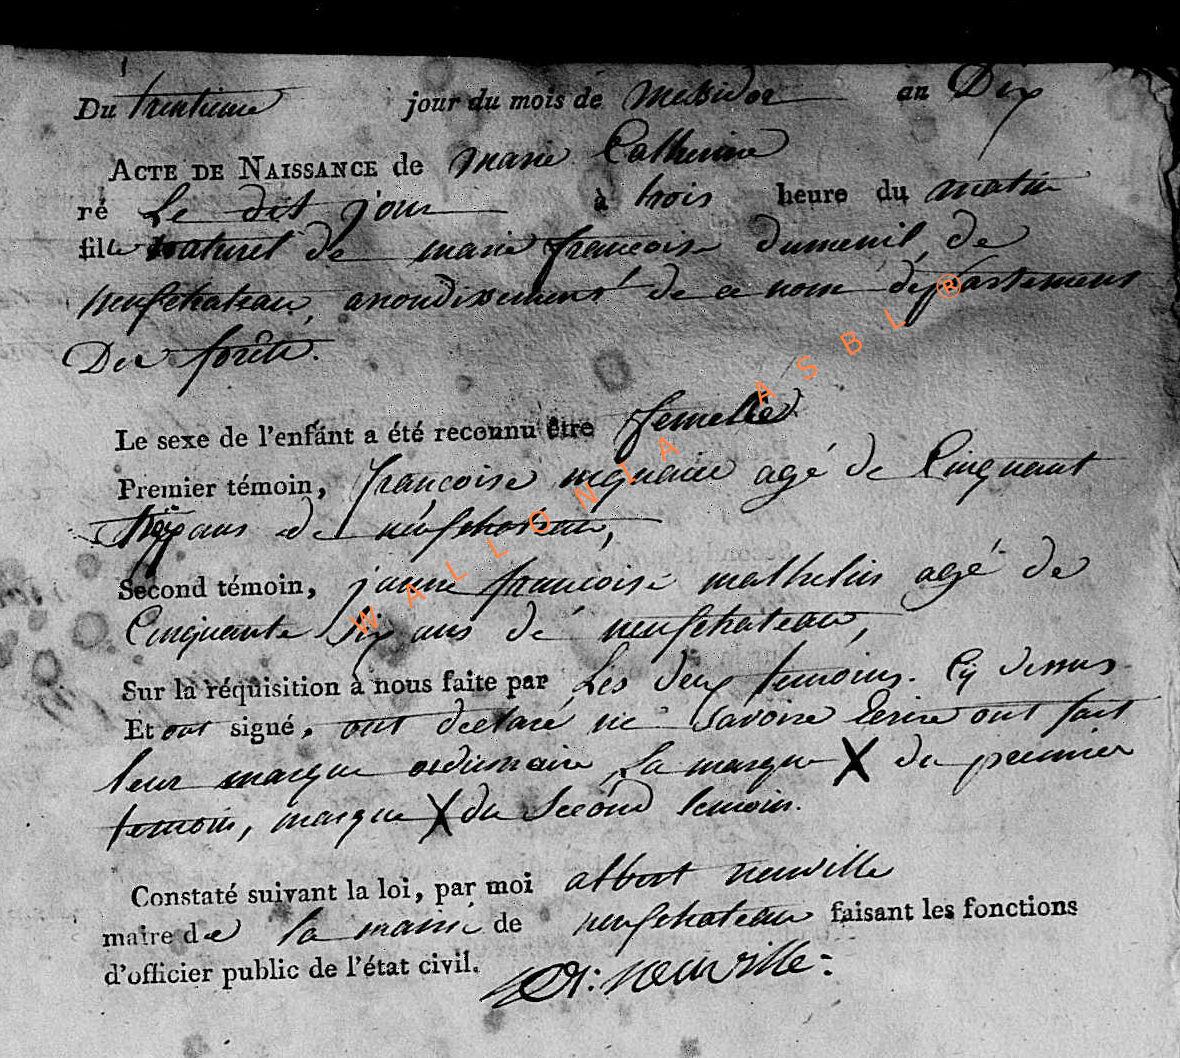 Du trentieme jour du mois de messidor an Dix
ACTE DE NAISSANCE de marie Catherine
né Le dit jour à trois heure du matin
fille naturel de marie françoise dumenil de
neufchateau, arrondissement de ce nom département
Des forêts.
Le sexe de l'enfant a été reconnu être femelle
Premier témoin, françoise agé de Cinquant
ans de neufchateau,
Second témoin, jeanne françoise mathelin agé de
Cinquante Six ans de neufchateau,
Sur la réquisition à nous faite par Les deux temoins. Cy dessus
Et ont signé, ont declaré ne Savoire Ecrire ont fait
leur marque ordinaire, La marque X du premier
temoin, marque X du Second temoin.
Constaté suivant la loi, par moi albert neuville
maire de la mairie de neufchateau faisant les fonctions
d'officier public de l'état civil. A: neuville:
WALLONIA ASBL ®